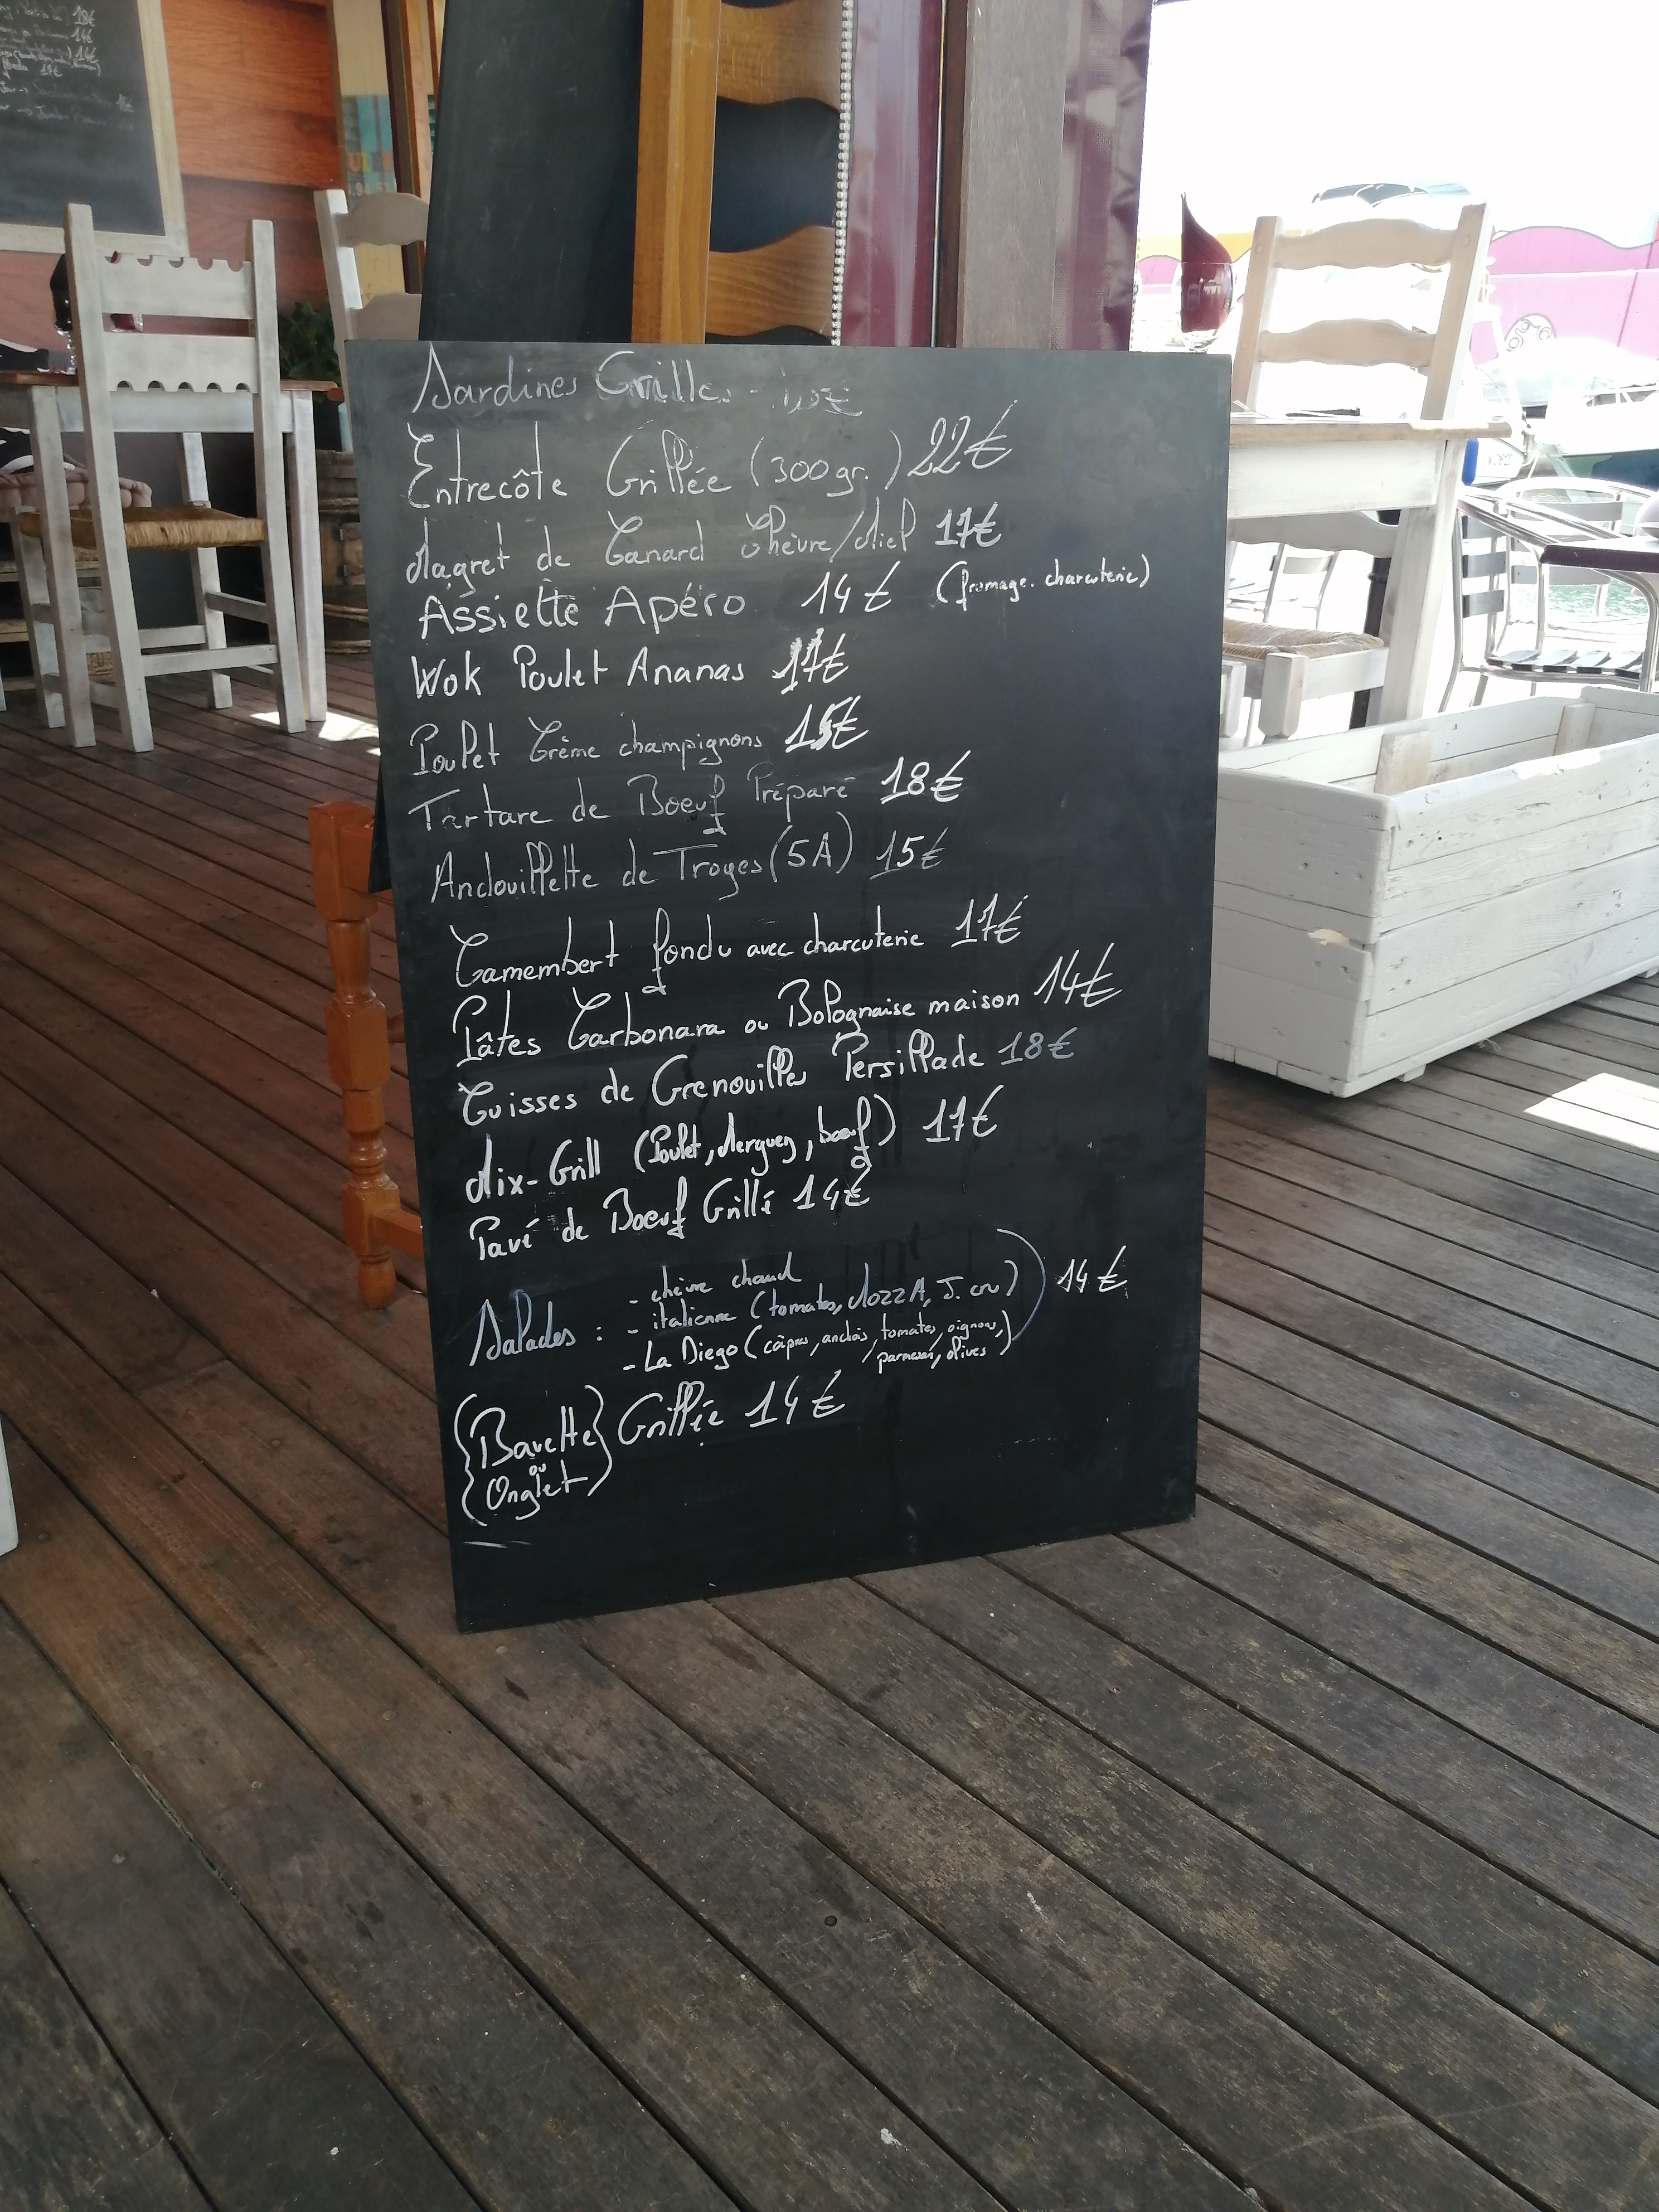 Sardines Grillées -
Entrecôte Grillée (300gr.) 22€
Magret de Canard Chèvre/Miel 17€
Assiette Apéro 14€ (fromage. charcuterie)
Wok Poulet Ananas 17€
Poulet Crème champignons 15€
Tartare de Boeuf Préparé 18€
Andouillette de Troyes (5A) 15€
Camembert fondu avec charcuterie 17€
Pâtes Carbonara ou Bolognaise maison 14€
Cuisses de Grenouilles Persillade 18€
Mix-Grill (Poulet, Merguez, boeuf) 17€
Pavé de Boeuf Grillé 14€
- chèvre chaud
Salades : - italienne (tomates, MozzA, J. cru) 14€
- La Diego (câpres, anchois, tomates, oignons,
parmesan, olives)
{Bavette} Grillée 14€
ou
Onglet